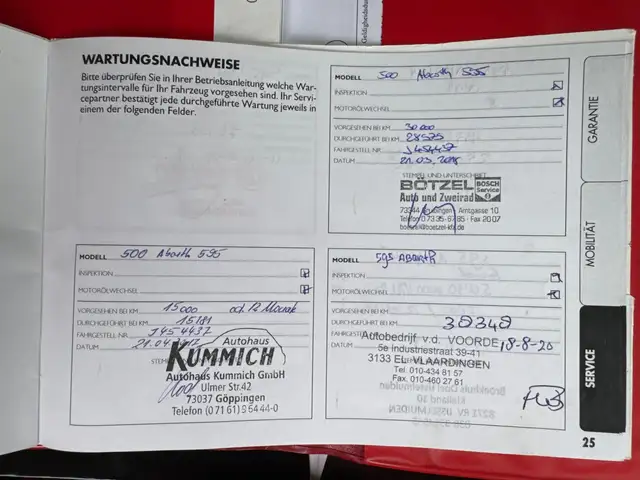 WARTUNGSNACHWEISE
Bitte überprüfen Sie in Ihrer Betriebsanleitung welche War-
tungsintervalle für Ihr Fahrzeug vorgesehen sind. Ihr Servi-
cepartner bestätigt jede durchgeführte Wartung jeweils in
einem der folgenden Felder.
MODELL 500 Abarth 595
INSPEKTION
MOTORÖLWECHSEL
VORGESEHEN BEI KM 30.000
DURCHGEFÜHRT BEI KM 28525
FAHRGESTELL NR. J454437
DATUM 21.03.2018
STEMPEL UND UNTERSCHRIFT
BÖTZEL
BOSCH
Service
Auto und Zweirad
Amtgasse 10
MODELL 500 Abarth 595
INSPEKTION
MOTORÖLWECHSEL
VORGESEHEN BEI KM 15000
DURCHGEFÜHRT BEI KM 15181
FAHRGESTELL NR. J454437
DATUM 21.04.
Autohaus
KUMMICH
Autohaus Kummich GmbH
Ulmer Str.42
73037 Göppingen
Telefon (0 71 61) 9 64 44-0
MODELL 595 ABARTH
INSPEKTION
MOTORÖLWECHSEL
VORGESEHEN BEI KM
DURCHGEFÜHRT BEI KM 38348
Autobedrijf v.d. VOORDE
DATUM 18-8-20
5e industriestraat 39-41
3133 EL VLAARDINGEN
Tel. 010-434 81 57
Fax. 010-460 27 61
GARANTIE
MOBILITÄT
SERVICE
25